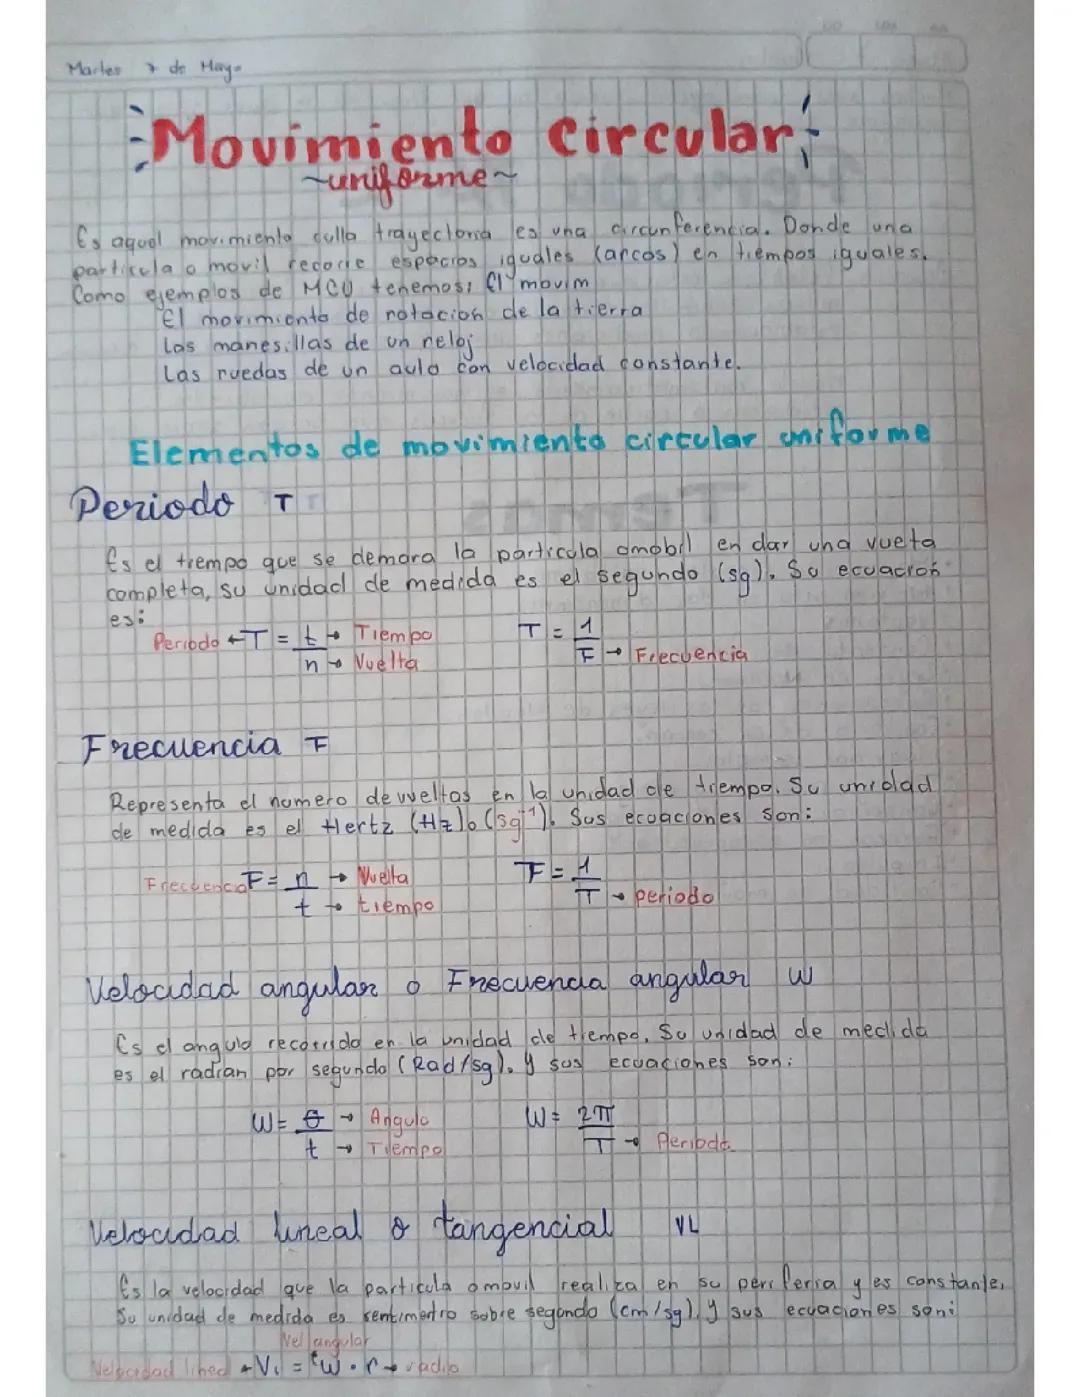 Martes 7 de Mayo
Movimiento circular
~uniforme~
Es aquel movimiento culla trayectoria es una circunferencia. Donde una
particula o movil recorre espacios iguales (arcos) en tiempos iguales.
Como ejemplos de MCU tenemos: El movim
El movimiento de rotacion de la tierra
Las manesillas de un reloj
Las ruedas de un auto con velocidad constante.
Elementos de movimiento circular uniforme
Periodo T
Es el tiempo que se demora la particula omobil en dar una vuelta
completa, su unidad de medida es el segundo (sg). Su ecuación
es:
Periodo ← T = t → Tiempo T = 1
n → Vuelta F → Frecuencia
Frecuencia F
Representa el numero de vueltas en la unidad de tiempo. Su unidad
de medida es el Hertz (Hz) o (sg⁻¹). Sus ecuaciones son:
Frecuencia F = n → Vuelta F = 1
t → tiempo T → periodo
Velocidad angular o Frecuencia angular W
Es el angulo recorrido en la unidad de tiempo. Su unidad de medida
es el radian por segundo (Rad/sg). y sus ecuaciones son:
W = θ → Angulo W = 2π
t → Tiempo T → Periodo
Velocidad lineal o tangencial VL
Es la velocidad que la particula o movil realiza en su periferia y es constante.
Su unidad de medida es sentimentro sobre segundo (cm/sg). y sus ecuaciones son:
Vel angular
Velocidad lineal ← VL = W · r → radio